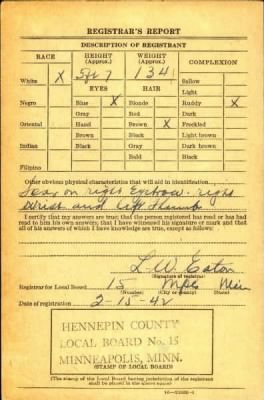 REGISTRAR'S REPORT
DESCRIPTION OF REGISTRANT
RACE HEIGHT (Approx.) WEIGHT (Approx.) COMPLEXION
White X 5 ft 7 134 Sallow
EYES HAIR Light
Negro Blue X Blonde Ruddy X
Gray Red Dark
Oriental Hazel Brown X Freckled
Brown Black Light brown
Indian Black Gray Dark brown
Bald Black
Filipino
Other obvious physical characteristics that will aid in identification
Scar on right Eyebrow - right
Wrist and left Thumb
I certify that my answers are true; that the person registered has read or has had
read to him his own answers; that I have witnessed his signature or mark and that
all of his answers of which I have knowledge are true, except as follows:
L. W. Eaton
Registrar for Local Board 15 Mpls Minn
(Number) (City or county) (State)
Date of registration 2-15-42
HENNEPIN COUNTY
LOCAL BOARD No. 15
MINNEAPOLIS, MINN.
(STAMP OF LOCAL BOARD)
(The stamp of the Local Board having jurisdiction of the registrant
shall be placed in the above space)